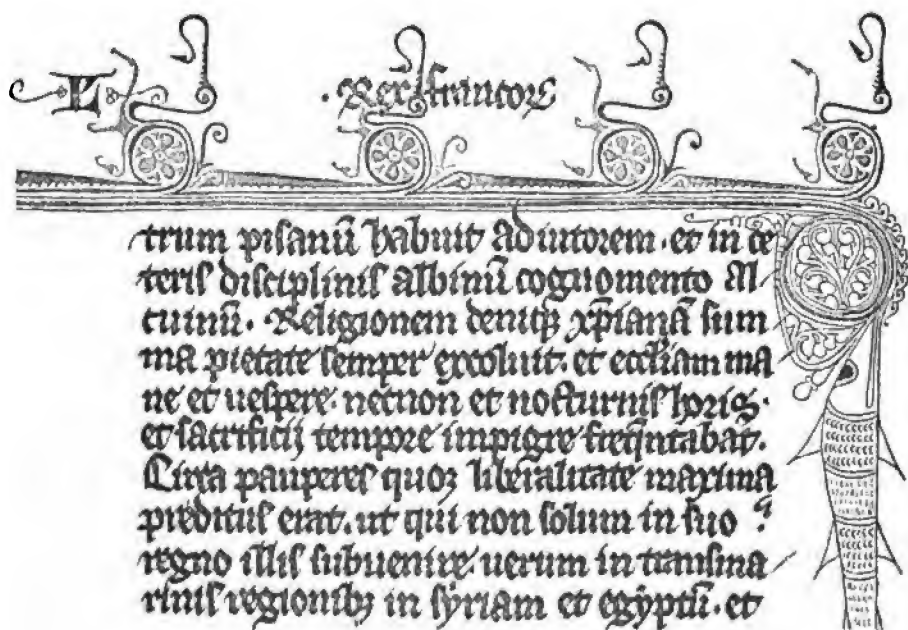 L
·Rex francorꝫ
trum pisanū habuit adiutorem· et in ce
teris disciplinis albinū cognomento Al
cuinū· Religionem deniqꝫ xp̄ianā sum
ma pietate semper excoluit· et eccl̄iam ma
ne et uespere· necnon et nocturnis horis·
et sacrificij tempore impigre freq̄ntabat·
Circa pauperes quoꝫ liberalitate maxima
preditus erat· ut qui non solum in suo
regno illis subuenire· uerum in transma
rinis regionibꝫ in syriam et egyptū· et